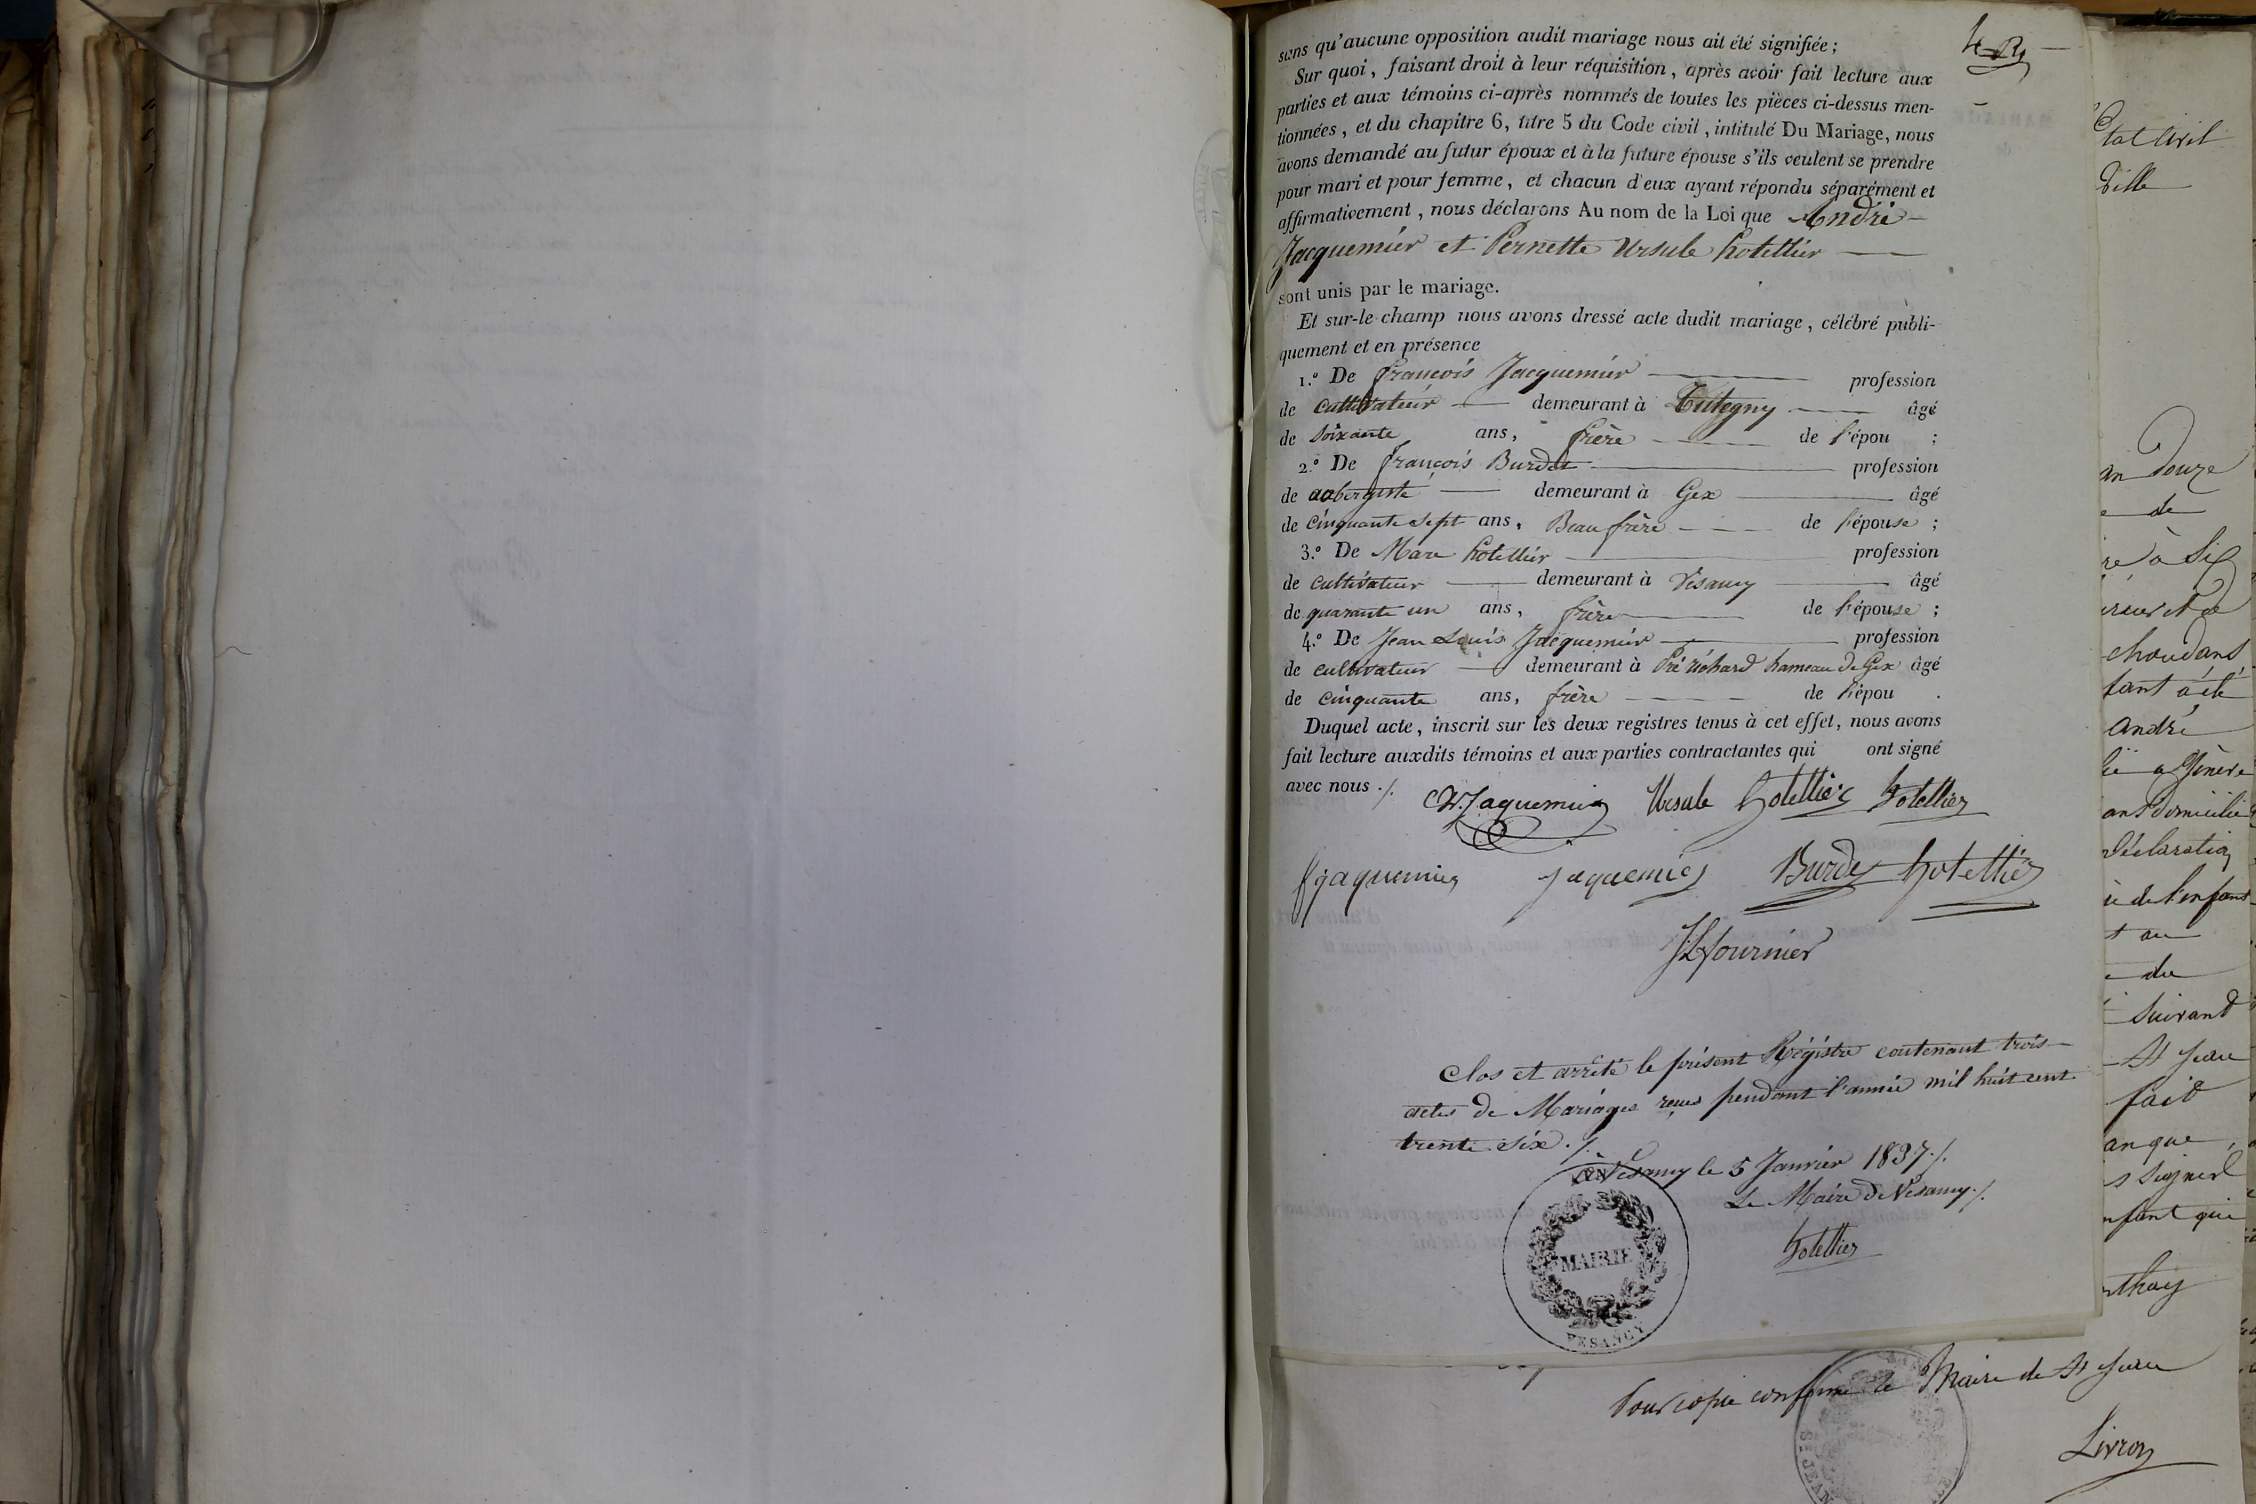 sans qu'aucune opposition audit mariage nous ait été signifiée;
Sur quoi, faisant droit à leur réquisition, après avoir fait lecture aux
parties et aux témoins ci-après nommés de toutes les pièces ci-dessus men-
tionnées, et du chapitre 6, titre 5 du Code civil, intitulé Du Mariage, nous
avons demandé au futur époux et à la future épouse s'ils veulent se prendre
pour mari et pour femme, et chacun d'eux ayant répondu séparément et
affirmativement, nous déclarons Au nom de la Loi que André
Jacquemier et Pernette Ursule hotellier
sont unis par le mariage.
Et sur-le-champ nous avons dressé acte dudit mariage, célébré publi-
quement et en présence
1.º De françois Jacquemier profession
de cultivateur demeurant à Tutegny âgé
de soixante ans, frère de l'épou ;
2.º De françois Burdet profession
de aubergiste demeurant à Gex âgé
de cinquante sept ans, Beau frère de l'épouse ;
3.º De Marc hotellier profession
de cultivateur demeurant à Vésancy âgé
de quarante un ans, frère de l'épouse ;
4.º De Jean Louis Jacquemier profession
de cultivateur demeurant à Pré richard hameau de Gex âgé
de cinquante ans, frère de l'épou .
Duquel acte, inscrit sur les deux registres tenus à cet effet, nous avons
fait lecture auxdits témoins et aux parties contractantes qui ont signé
avec nous ./.
Jaquemier Ursule hotellier hotellier
fjaquemier jaquemier Burdet hotellier
JLfournier
Clos et arrêté le présent Régistre contenant trois
actes de Mariages reçus pendant l'année mil huit cent
trente six ./.
à Vésancy le 5 Janvier 1837 ./.
Le Maire de Vésancy ./.
hotellier
MAIRIE
VESANCY
Pour copie conforme le Maire de St Jean
Livron
St JEAN
Etat Civil
Ville
an douze
de
à Six
choudans
fant a été
andré
à Génève
ans domicilié
déclaration
de l'enfant
au
du
suivant
St Jean
fait
anque
signer
nfant qui